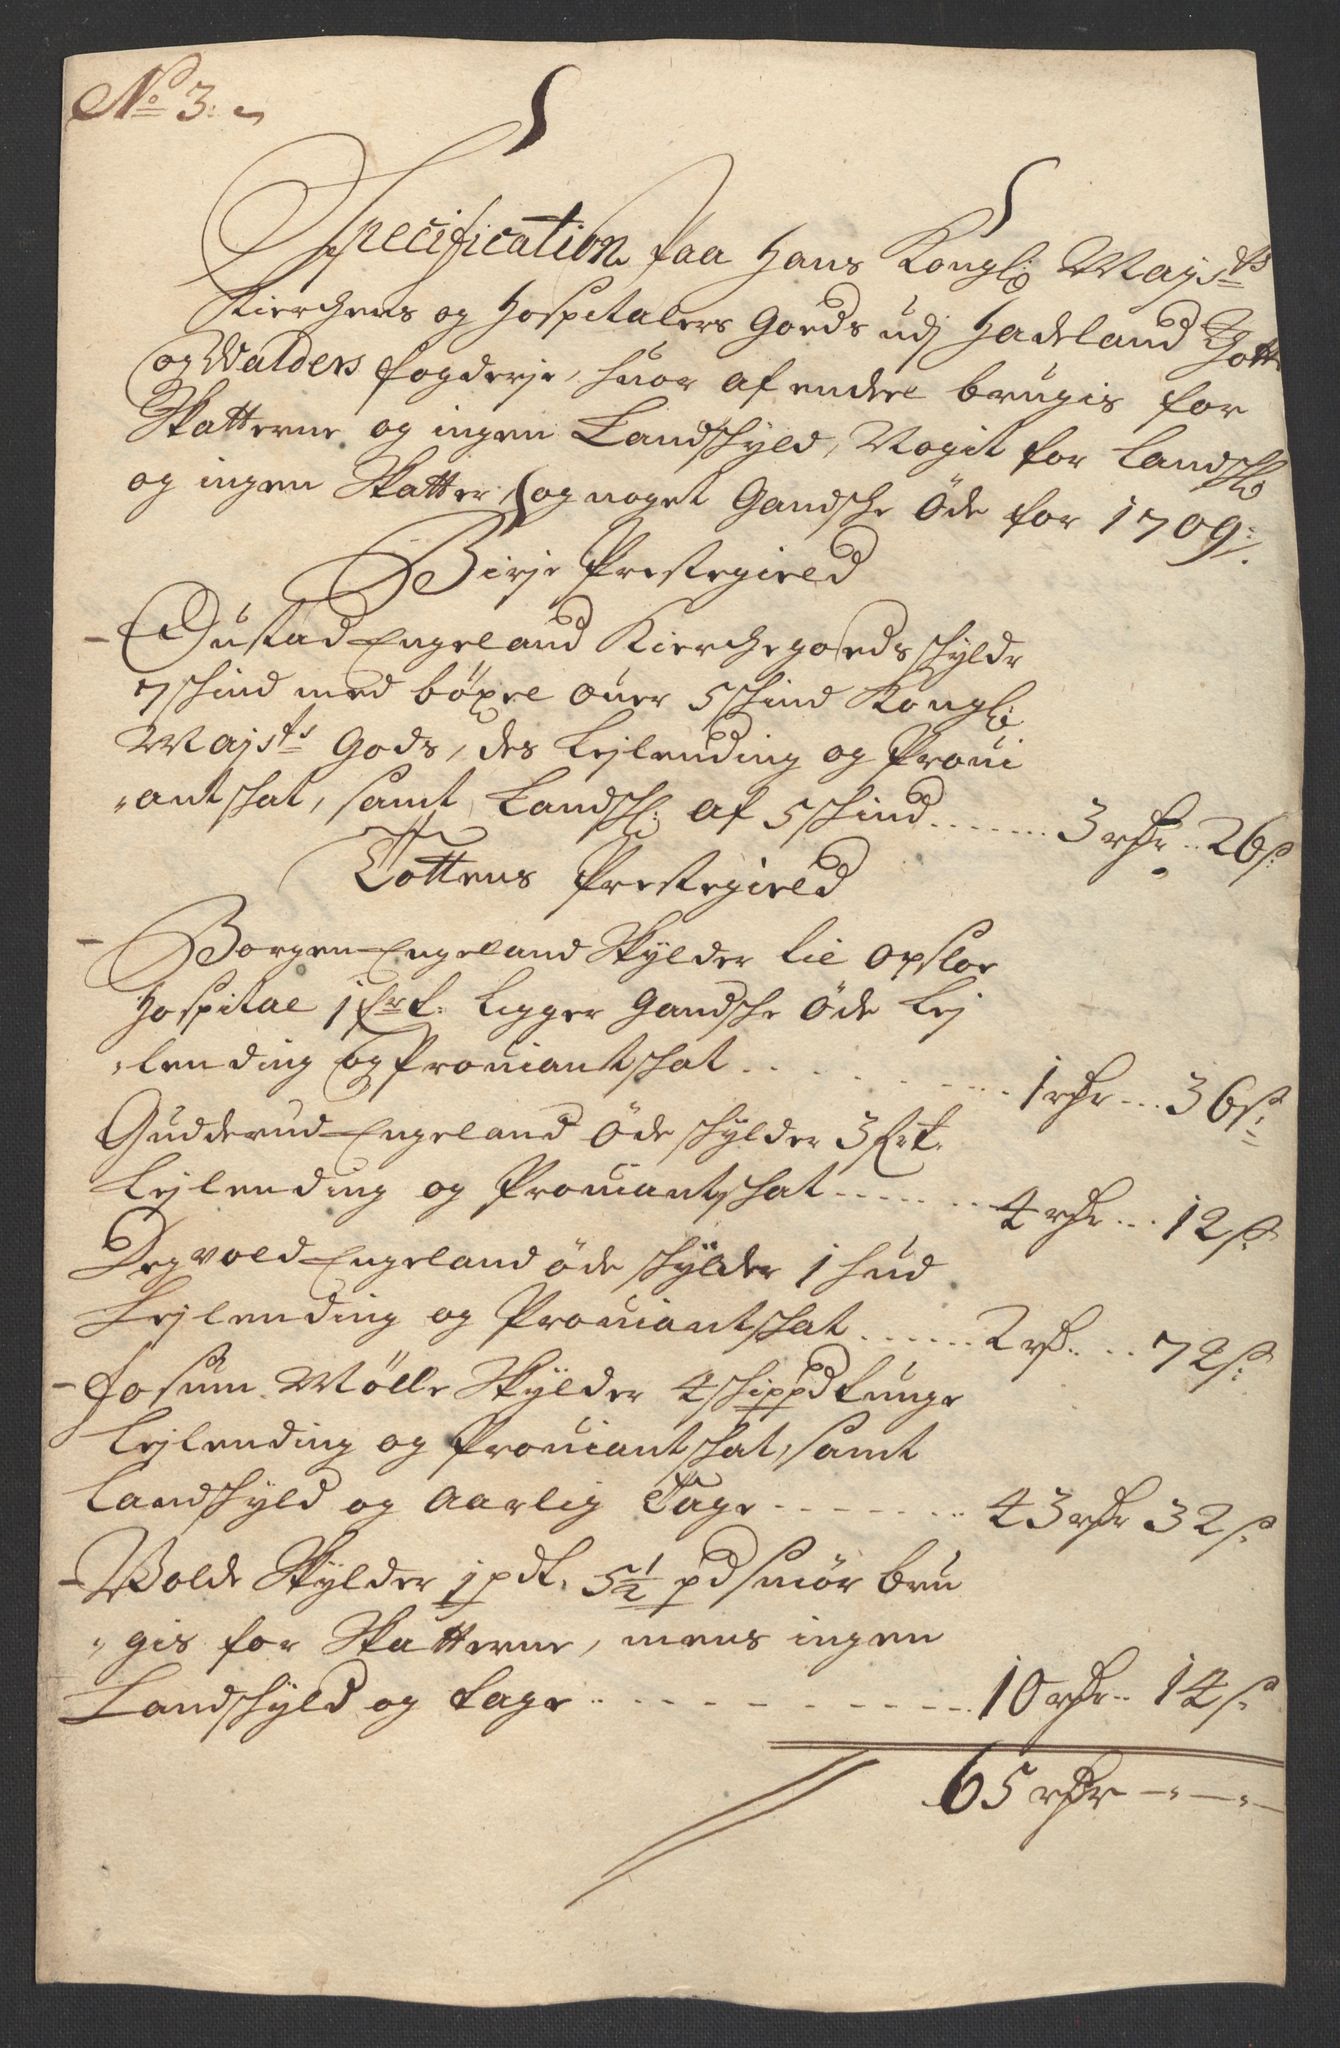 No 3.
Specification paa Hans Kongl: Mayst:ts
Kierchens og Hospitalers Goeds udj Hadeland Totten
og Walders fogderje, huor af endeel brugis for
Skatterne og ingen Landschyld, Noget for Landsch:
og ingen Skatter, og noget Gandsche Öde for 1709:
Birje Prestegield
Gustad Engeland Kierchegoeds schylde
7 schind med böxel ouer 5 schind Kongl:
Mayst:ts Gods, des Leylending og Proui
antschat, samt Landsch: af 5 schind ....... 3 rdr .. 26 s:
Tottens Prestegield
Borgen Engeland Skylder til Opsloe
Hospital 1 fr:t: ligger Gandsche Öde Lej
lending og Prouiantschat ....... 1 rdr ... 36 s:
Gudderud Engeland Öde schylder 3 fr:t:
Leylending og Prouiantschat ....... 4 rdr ... 12 s:
Degvold Engeland öde schylder 1 hud
Leylending og Prouiantschat ...... 2 rd: .. 72 s:
Josum Mölle Skylder 4 schippd tunge
Leylending og Prouiantschat, samt
Landschyld og Aarlig Tage ....... 43 rdr 32 s:
Wolde Skylder 1 pd:t. 5 1/2 pd smör bru
gis for Skatterne, mens ingen
Landschyld og tage ....... 10 rdr .. 14 s:
65 rdr - " - " -